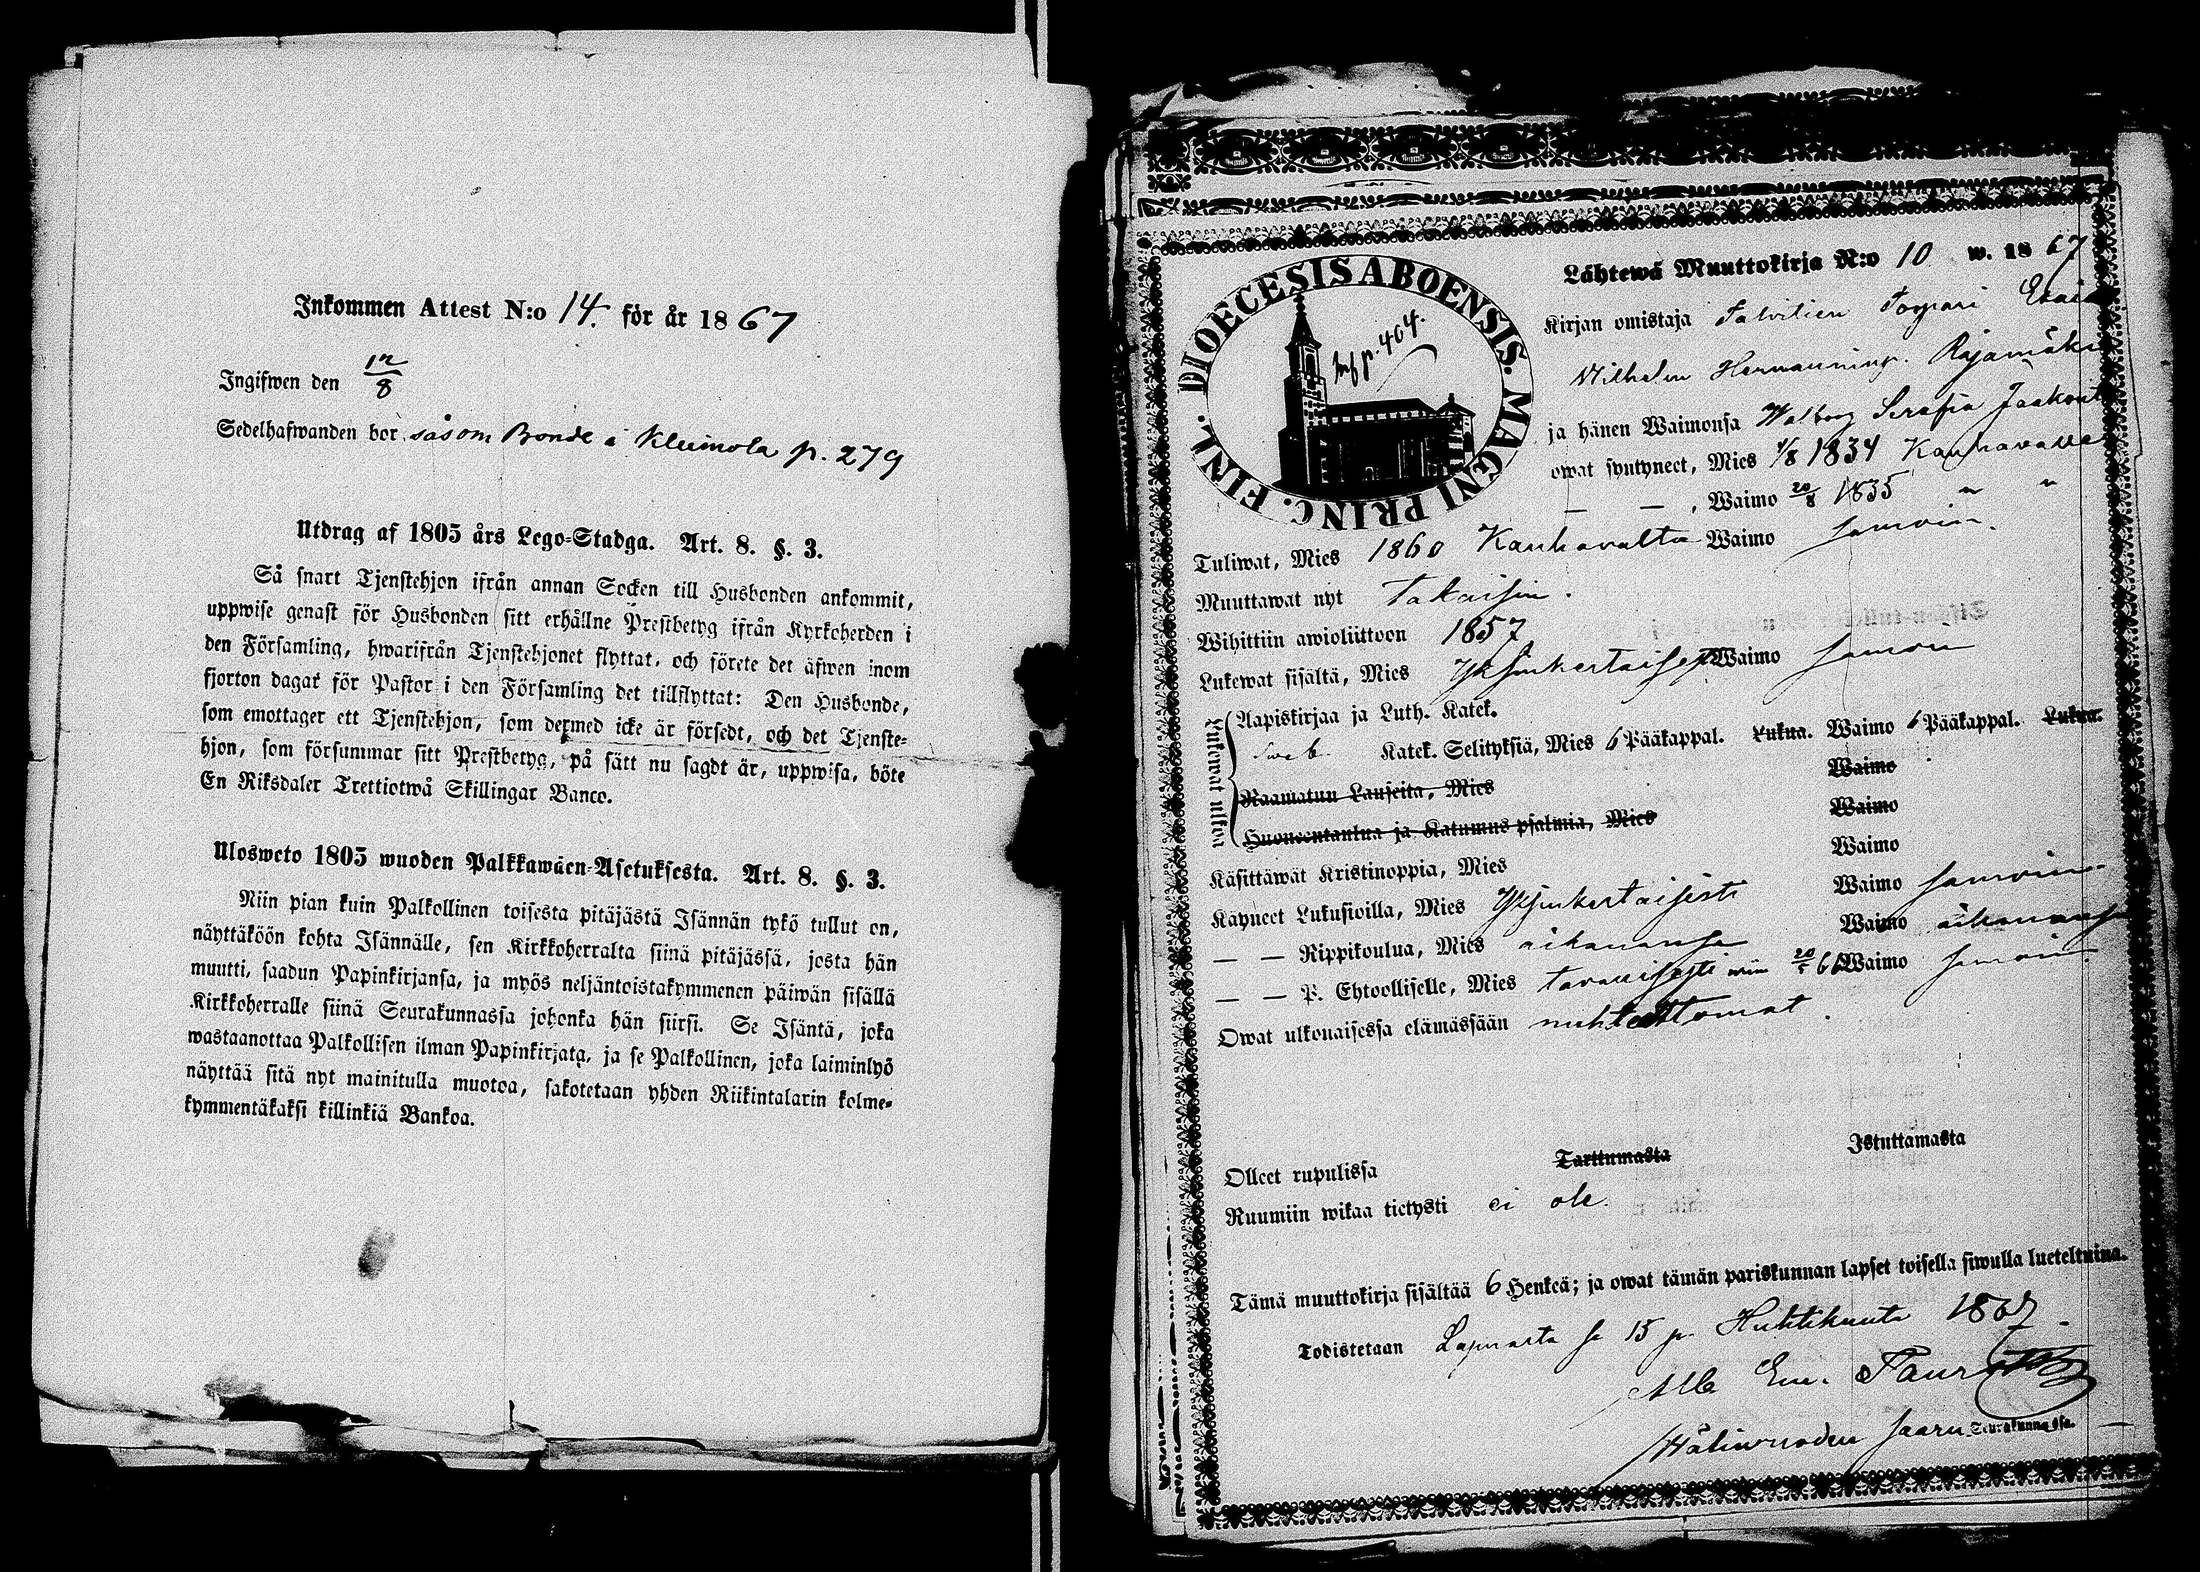 Inkommen Attest N:o 14. för år 1867
Ingifwen den 12/8
Sedelhafwanden bor såsom Bonde i Kleimola p. 279
Utdrag af 1805 års Lego-Stadga. Art. 8. §. 3.
Så snart Tjenstehjon ifrån annan Socken till Husbonden ankommit,
uppwise genast för Husbonden sitt erhållne Prestbetyg ifrån Kyrkoherden i
den Församling, hwarifrån Tjenstehjonet flyttat, och förete det äfwen inom
fjorton dagar för Pastor i den Församling det tillflyttat: Den Husbonde,
som emottager ett Tjenstehjon, som dermed icke är försedt, och det Tjenste-
hjon, som försummar sitt Prestbetyg, på sätt nu sagdt är, uppwisa, böte
En Riksdaler Trettiotwå Skillingar Banco.
Ulosweto 1805 wuoden Palkkawäen-Asetuksesta. Art. 8. §. 3.
Niin pian kuin Palkollinen toisesta pitäjästä Isännän tykö tullut on,
näyttäköön kohta Isännälle, sen Kirkkoherralta siinä pitäjässä, josta hän
muutti, saadun Papinkirjansa, ja myös neljäntoistakymmenen päiwän sisällä
Kirkkoherralle siinä Seurakunnassa johonka hän siirsi. Se Isäntä, joka
wastaanottaa Palkollisen ilman Papinkirjata, ja se Palkollinen, joka laiminlyö
näyttää sitä nyt mainitulla muotoa, sakotetaan yhden Riikintalarin kolme-
kymmentäkaksi killinkiä Bankoa.
DIOECESIS ABOENSIS. MAGNI PRINC. FINL.
Inf p. 464.
Lähtewä Muuttokirja N:o 10 w. 1867
Kirjan omistaja Talvitien Torpari Esaias
Wilhelm Hermanninp. Rajamäki
ja hänen Waimonsa Walborg Serafia Jaakont
owat syntyneet, Mies 1/8 1834 Kauhavalla
— — , Waimo 20/8 1835 " "
Tuliwat, Mies 1860 Kauhavalta Waimo samoin.
Muuttawat nyt Takaisin.
Wihittiin awioliittoon 1857
Lukewat sisältä, Mies Yksinkertaisesti Waimo samoin
Lukewat ulkoa
Aapiskirjaa ja Luth. Katek.
Katek. Selityksiä, Mies 6 Pääkappal. Lukua. Waimo 6 Pääkappal. Lukua.
Raamatun Lauseita, Mies Waimo
Huoneentaulua ja Katumus psalmia, Mies Waimo
Käsittäwät Kristinoppia, Mies Waimo
Käyneet Lukusioilla, Mies Yksinkertaisesti Waimo samoin
— — Rippikoulua, Mies aikanansa Waimo aikanansa
— — P. Ehtoolliselle, Mies tavallisesti Waimo samoin.
Owat ulkonaisessa elämässään nuhteettomat.
Olleet rupulissa Tarttumasta Istuttamasta
Ruumiin wikaa tietysti ei ole.
Tämä muuttokirja sisältää 6 Henkeä; ja owat tämän pariskunnan lapset toisella siwulla lueteltuina.
Todistetaan Lapuasta se 15 p. Huhtikuuta 1867.
Wäliwuoden Saarn Seurakunnassa.